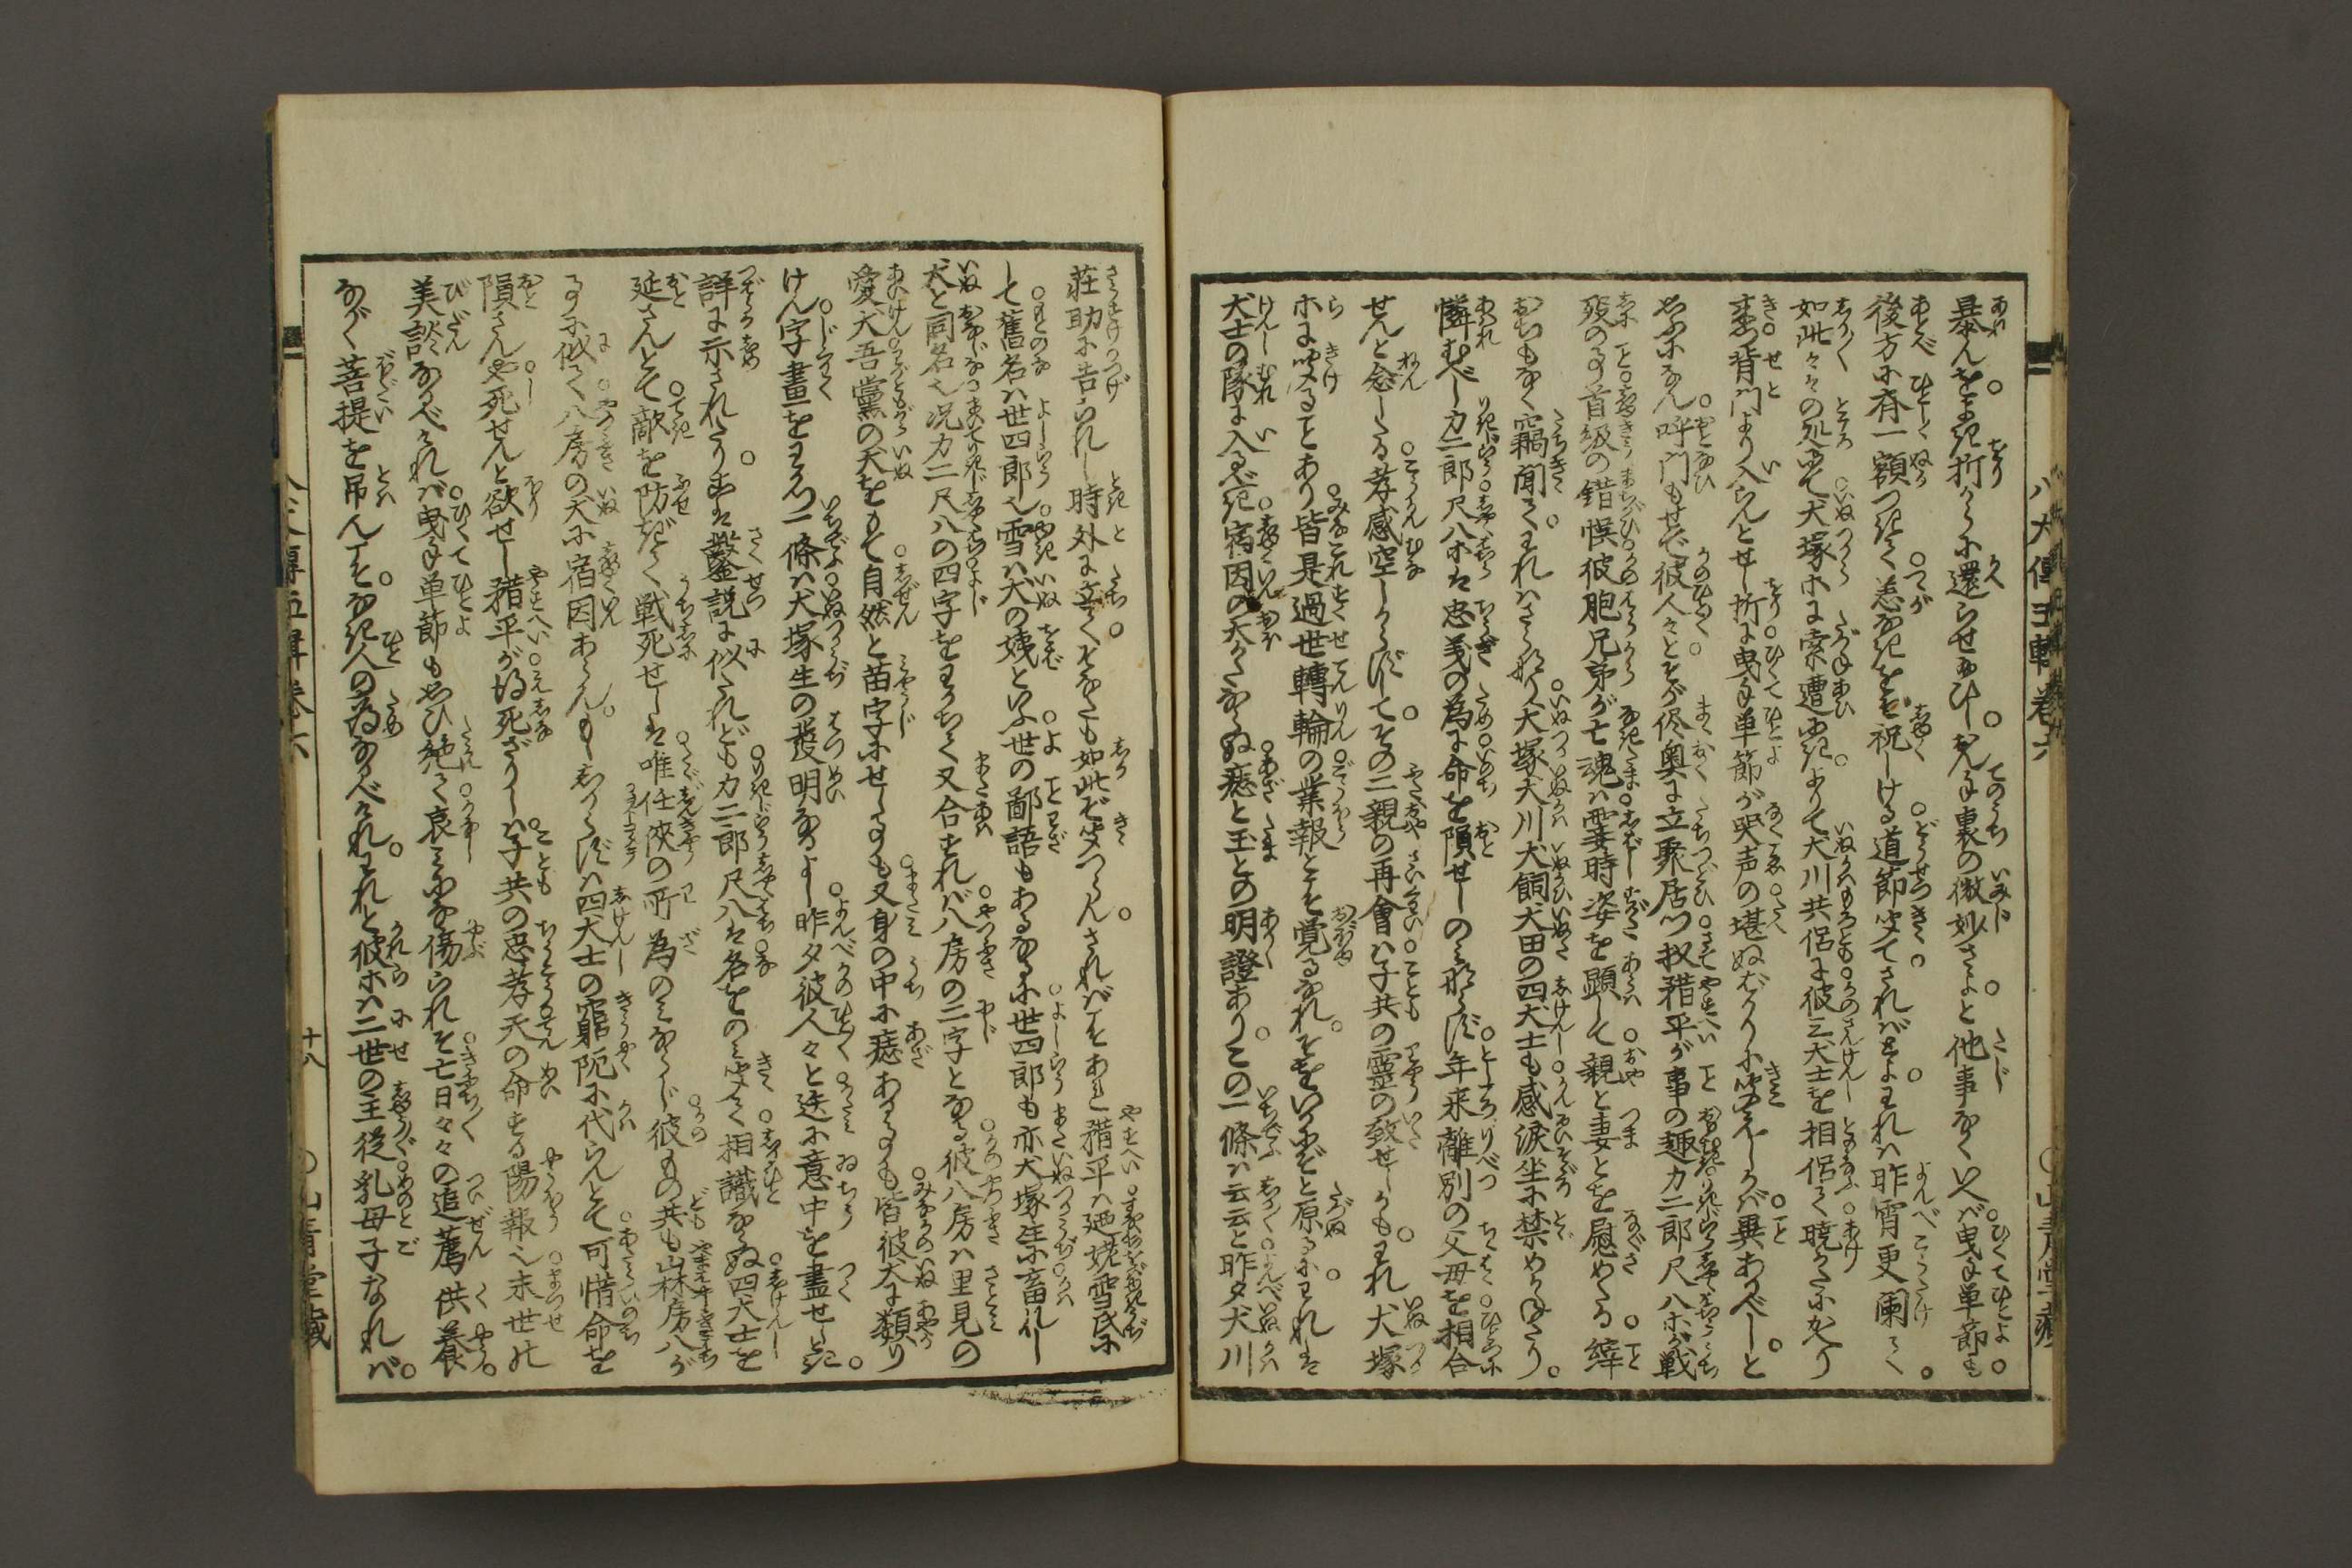 八犬傳五輯卷六
暴ん。とまれ折から小還らせ給ひし。儿手裏の微妙さよと。他事なくいへば曳手単節も。
後方に斉一額つきて。恙なきをぞ祝しける。道節聞てさればとよ。われハ昨宵更闌て。
如此々々の処にて。犬塚ホに索遭ひにき。よりて犬川共侶に彼三犬士を相侶て。暁かたにかへり
来つ。背門より入らんとせし折に。曳手単節が哭声の堪ぬばかりに聞えしかバ。異あるべしと
思ふになん。呼門もせで彼人々と。そが侭奥に立聚居つ。扨猎平が事の趣力二郎尺八ホが戦
死の事。首級の錯悞。彼胞兄弟が亡魂ハ。霎時姿を顕して。親と妻とを慰めたる。縡
おちもなく竊聞て。われハさら也。犬塚犬川犬飼犬田の四犬士も感涙坐に禁めかねたり。
憐むべし力二郎。尺八ホは忠義の為に。命を隕せしのミならず。年来離別の父母を相合
せんと念じたる。孝感空しからずして。その二親の再會ハ。子共の霊の致せしかも。われ犬塚
ホに聞ることあり。皆是過世轉輪の。業報とこそ覚るなれ。そをいかにぞと原るに。われは
犬士の隊に入るべき。宿因の大かたならぬ。痣と玉との明證あり。この一條ハ云云と。昨夕犬川
山青堂藏
荘助に告られし時。外に立てそなたも如此ぞ聞つらん。されバこそあれ猎平ハ。廼姥雪氏に
して。舊名ハ世四郎也。雪ハ犬の姨といふ。世の鄙語もあるなるに。世四郎も亦犬塚生に畜れし
犬と同名也。况力二尺八の四字をわかちて又合すれバ。八房の二字となる。彼八房ハ里見の
愛犬。吾黨の犬をもて。自然と苗字にせしことも。又身の中に痣あることも。皆彼犬に類り
けん。字畫をわかつ一條ハ犬塚生の發明なるよし。昨夕彼人々と迭に意中を盡せしとき。
詳に示されたり。こは鑿説に似たれども。力二郎尺八は。名をのミ聞て相識ならぬ。四犬士を
延さんとて敵を防ぎて戦死せしは。唯任侠の所為のミならじ。彼もの共も山林房八が
事に似て。八房の犬に宿因あらんか。しからずハ四犬士の窮阨に代らんとて。可惜命を
隕さんや。死せんと欲せし猎平が得死ざりしハ。子共の忠孝。天の命ずる陽報也。末世の
美談なるべけれバ。曳手単節も思ひ絶て。哀ミにな傷られそ。亡日々々の追薦供養。
ながく菩提を吊んこそ。なき人の為なるべけれ。われと彼ホハ二世の主従。乳母子なれバ。
八犬傳五輯卷六
十八
山青堂藏